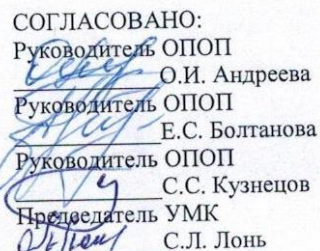 СОГЛАСОВАНО:
Руководитель ОПОП
О.И. Андреева
Руководитель ОПОП
Е.С. Болтанова
Руководитель ОПОП
С.С. Кузнецов
Председатель УМК
С.Л. Лонь